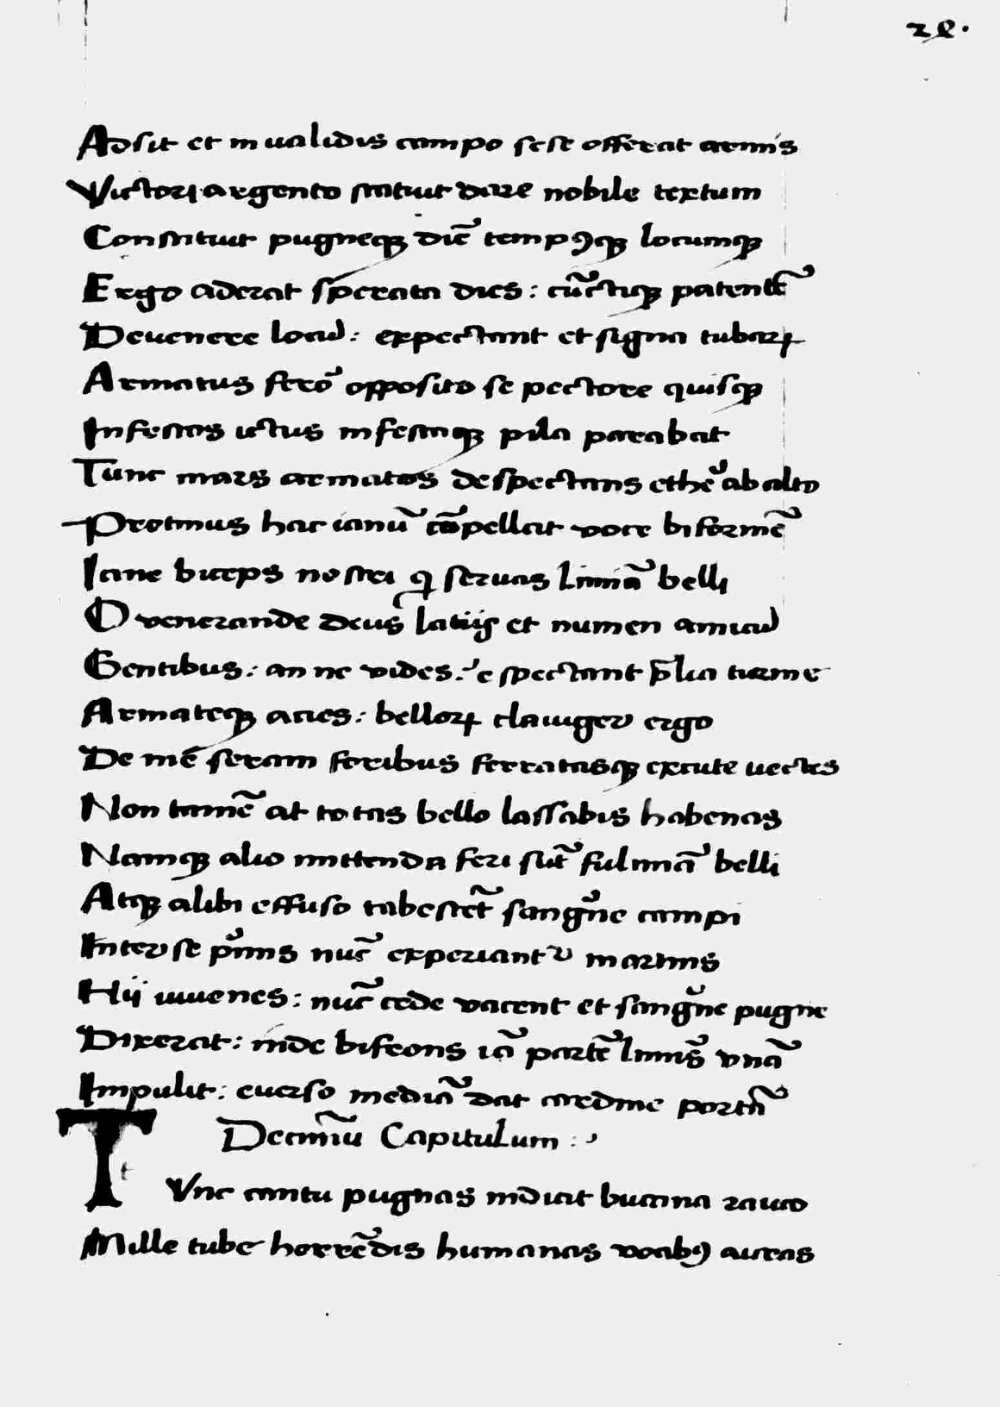 28.
Adsit et in ualidis campo sese offerat armis
Victori argento statuit dare nobile textum
Constituit pugneqꝫ diē tempꝰqꝫ locumqꝫ
Ergo aderat sperata dies : cūctiqꝫ patentē
Deuenere locū : expectant et signa tubaꝝ
Armatus ferro opposito se pectore quisqꝫ
Infestos ictus infestaqꝫ pila parabat
Tunc mars armatos despectans ethe᷑ ab alto
Protinus hac ianū cōpellat uoce biformē
Iane biceps nostri qi seruas liminā belli
O venerande deus latiis et numen amicū
Gentibus : an ne vides . ut spectant p̄lia turme
Armateqꝫ acies : belloꝝ clauiger ergo
De mē seram foribus ferratasqꝫ excute uectes
Non tamē at totas bello lassabis habenas
Namqꝫ alio mittenda feri sūt fulminā belli
Atqꝫ alibi effuso tabescēt sangⁱne campi
Inter se pⁱmis nūc experiantᷣ martins
Hij iuuenes : nūc cede vacent et sangⁱne pugne
Dixerat : inde bifrons iā partē limīs vnā
Impulit : euerso mediā dat cardine portā
Decimū Capitulum :
TVnc cantu pugnas indicit bucina rauco
Mille tube horrēdis humanas uocibꝰ auras